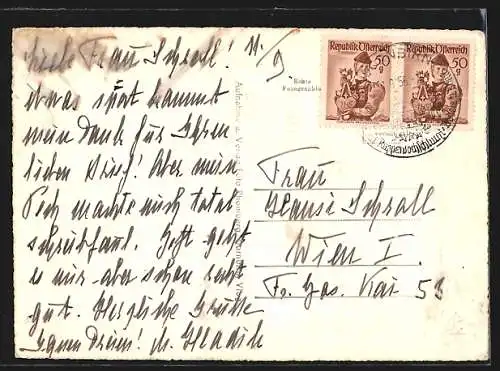 Liebe Frau Schroll! 11/9
Etwas spät kommt
mein Dank für Ihren
lieben Brief! Aber mein
Pech machte mich total
schreibfaul. Jetzt geht
es mir aber schon recht
gut. Herzliche Grüße
Ihnen Dreien! M. Hladik
Echte
Fotographie
Republik Österreich
50
g
Republik Österreich
50
g
Frau
Hansi Schroll
Wien I.
Fr. Jos. Kai 53